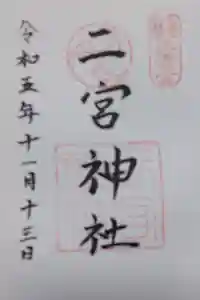 二宮神社
令和五年十一月十三日